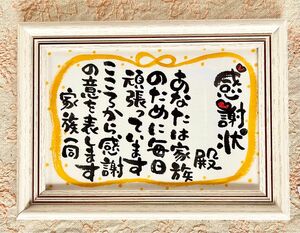 感謝状
殿
あなたは家族
のために毎日
頑張っています
こころから感謝
の意を表します
家族一同